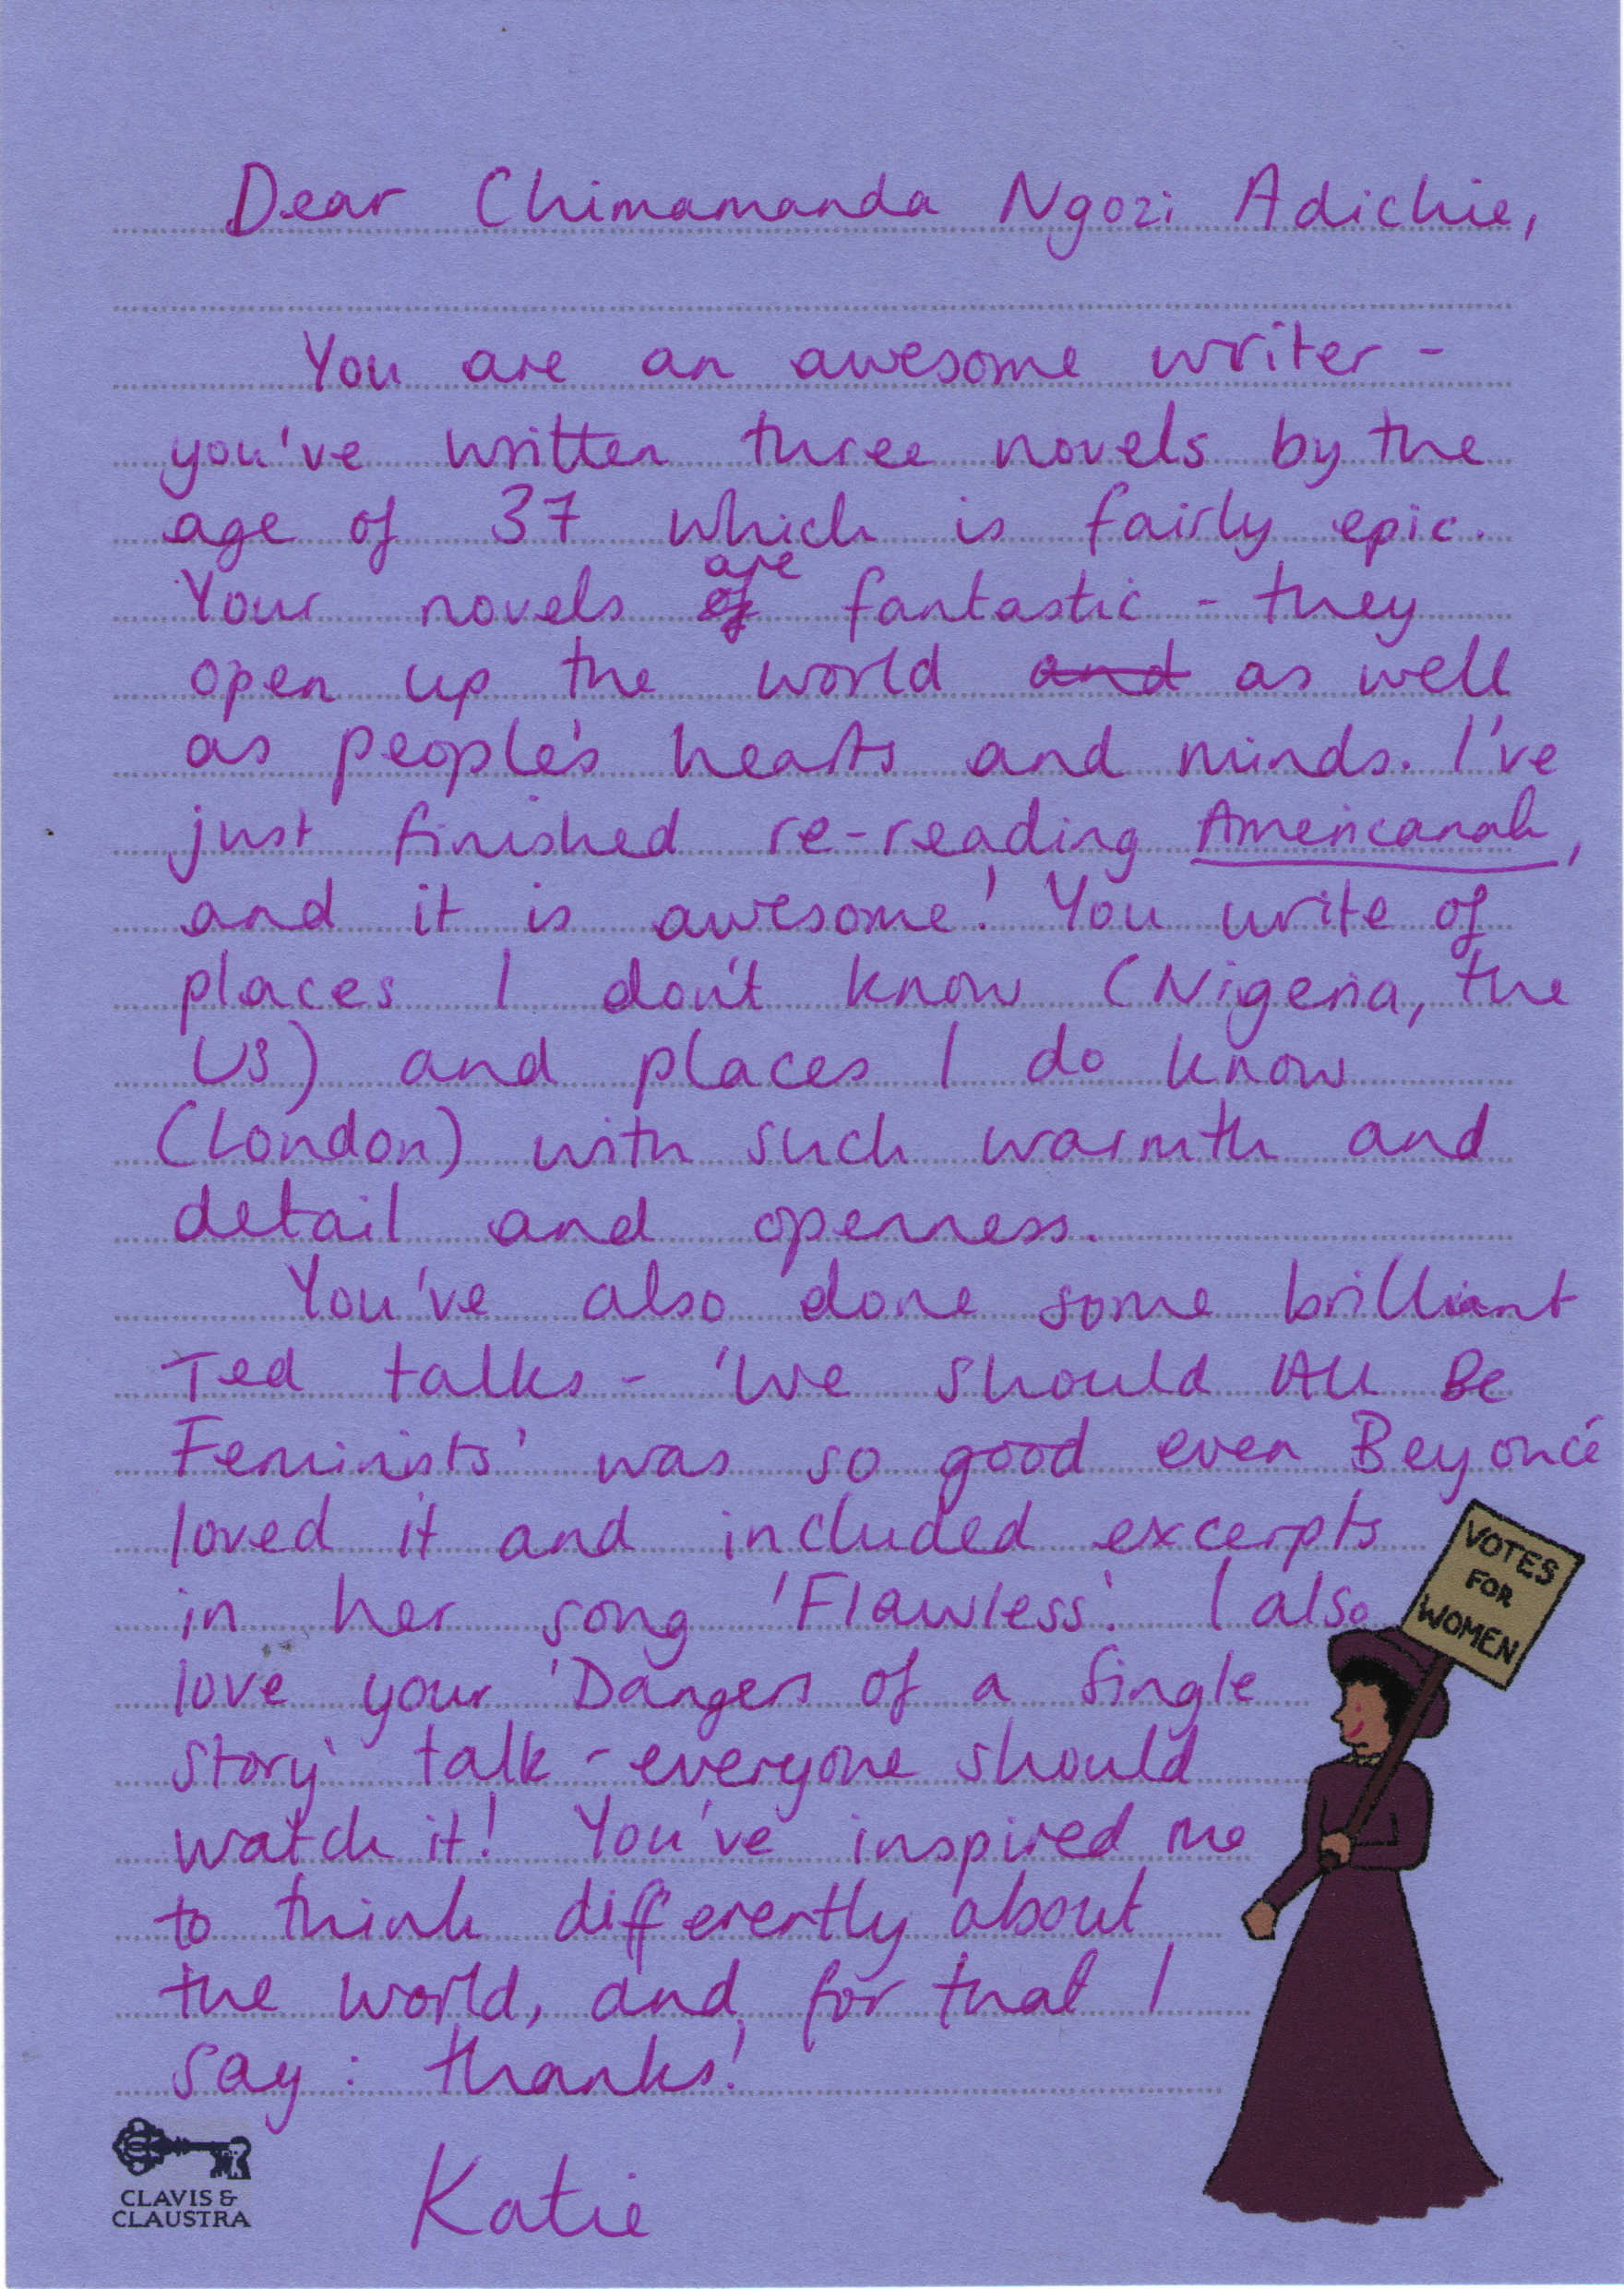 Dear Chimamanda Ngozi Adichie,
You are an awesome writer -
you've written three novels by the
age of 37 which is fairly epic.
Your novels ~~of~~ are fantastic - they
open up the world ~~and~~ as well
as people's hearts and minds. I've
just finished re-reading Americanah,
and it is awesome! You write of
places I don't know (Nigeria, the
US) and places I do know
(London) with such warmth and
detail and openness.
You've also done some brilliant
Ted talks - 'We Should All Be
Feminists' was so good even Beyoncé
loved it and included excerpts
in her song 'Flawless'. I also
love your 'Dangers of a Single
Story' talk - everyone should
watch it! You've inspired me
to think differently about
the world, and for that I
say: thanks!
Katie
VOTES
FOR
WOMEN
CLAVIS &
CLAUSTRA